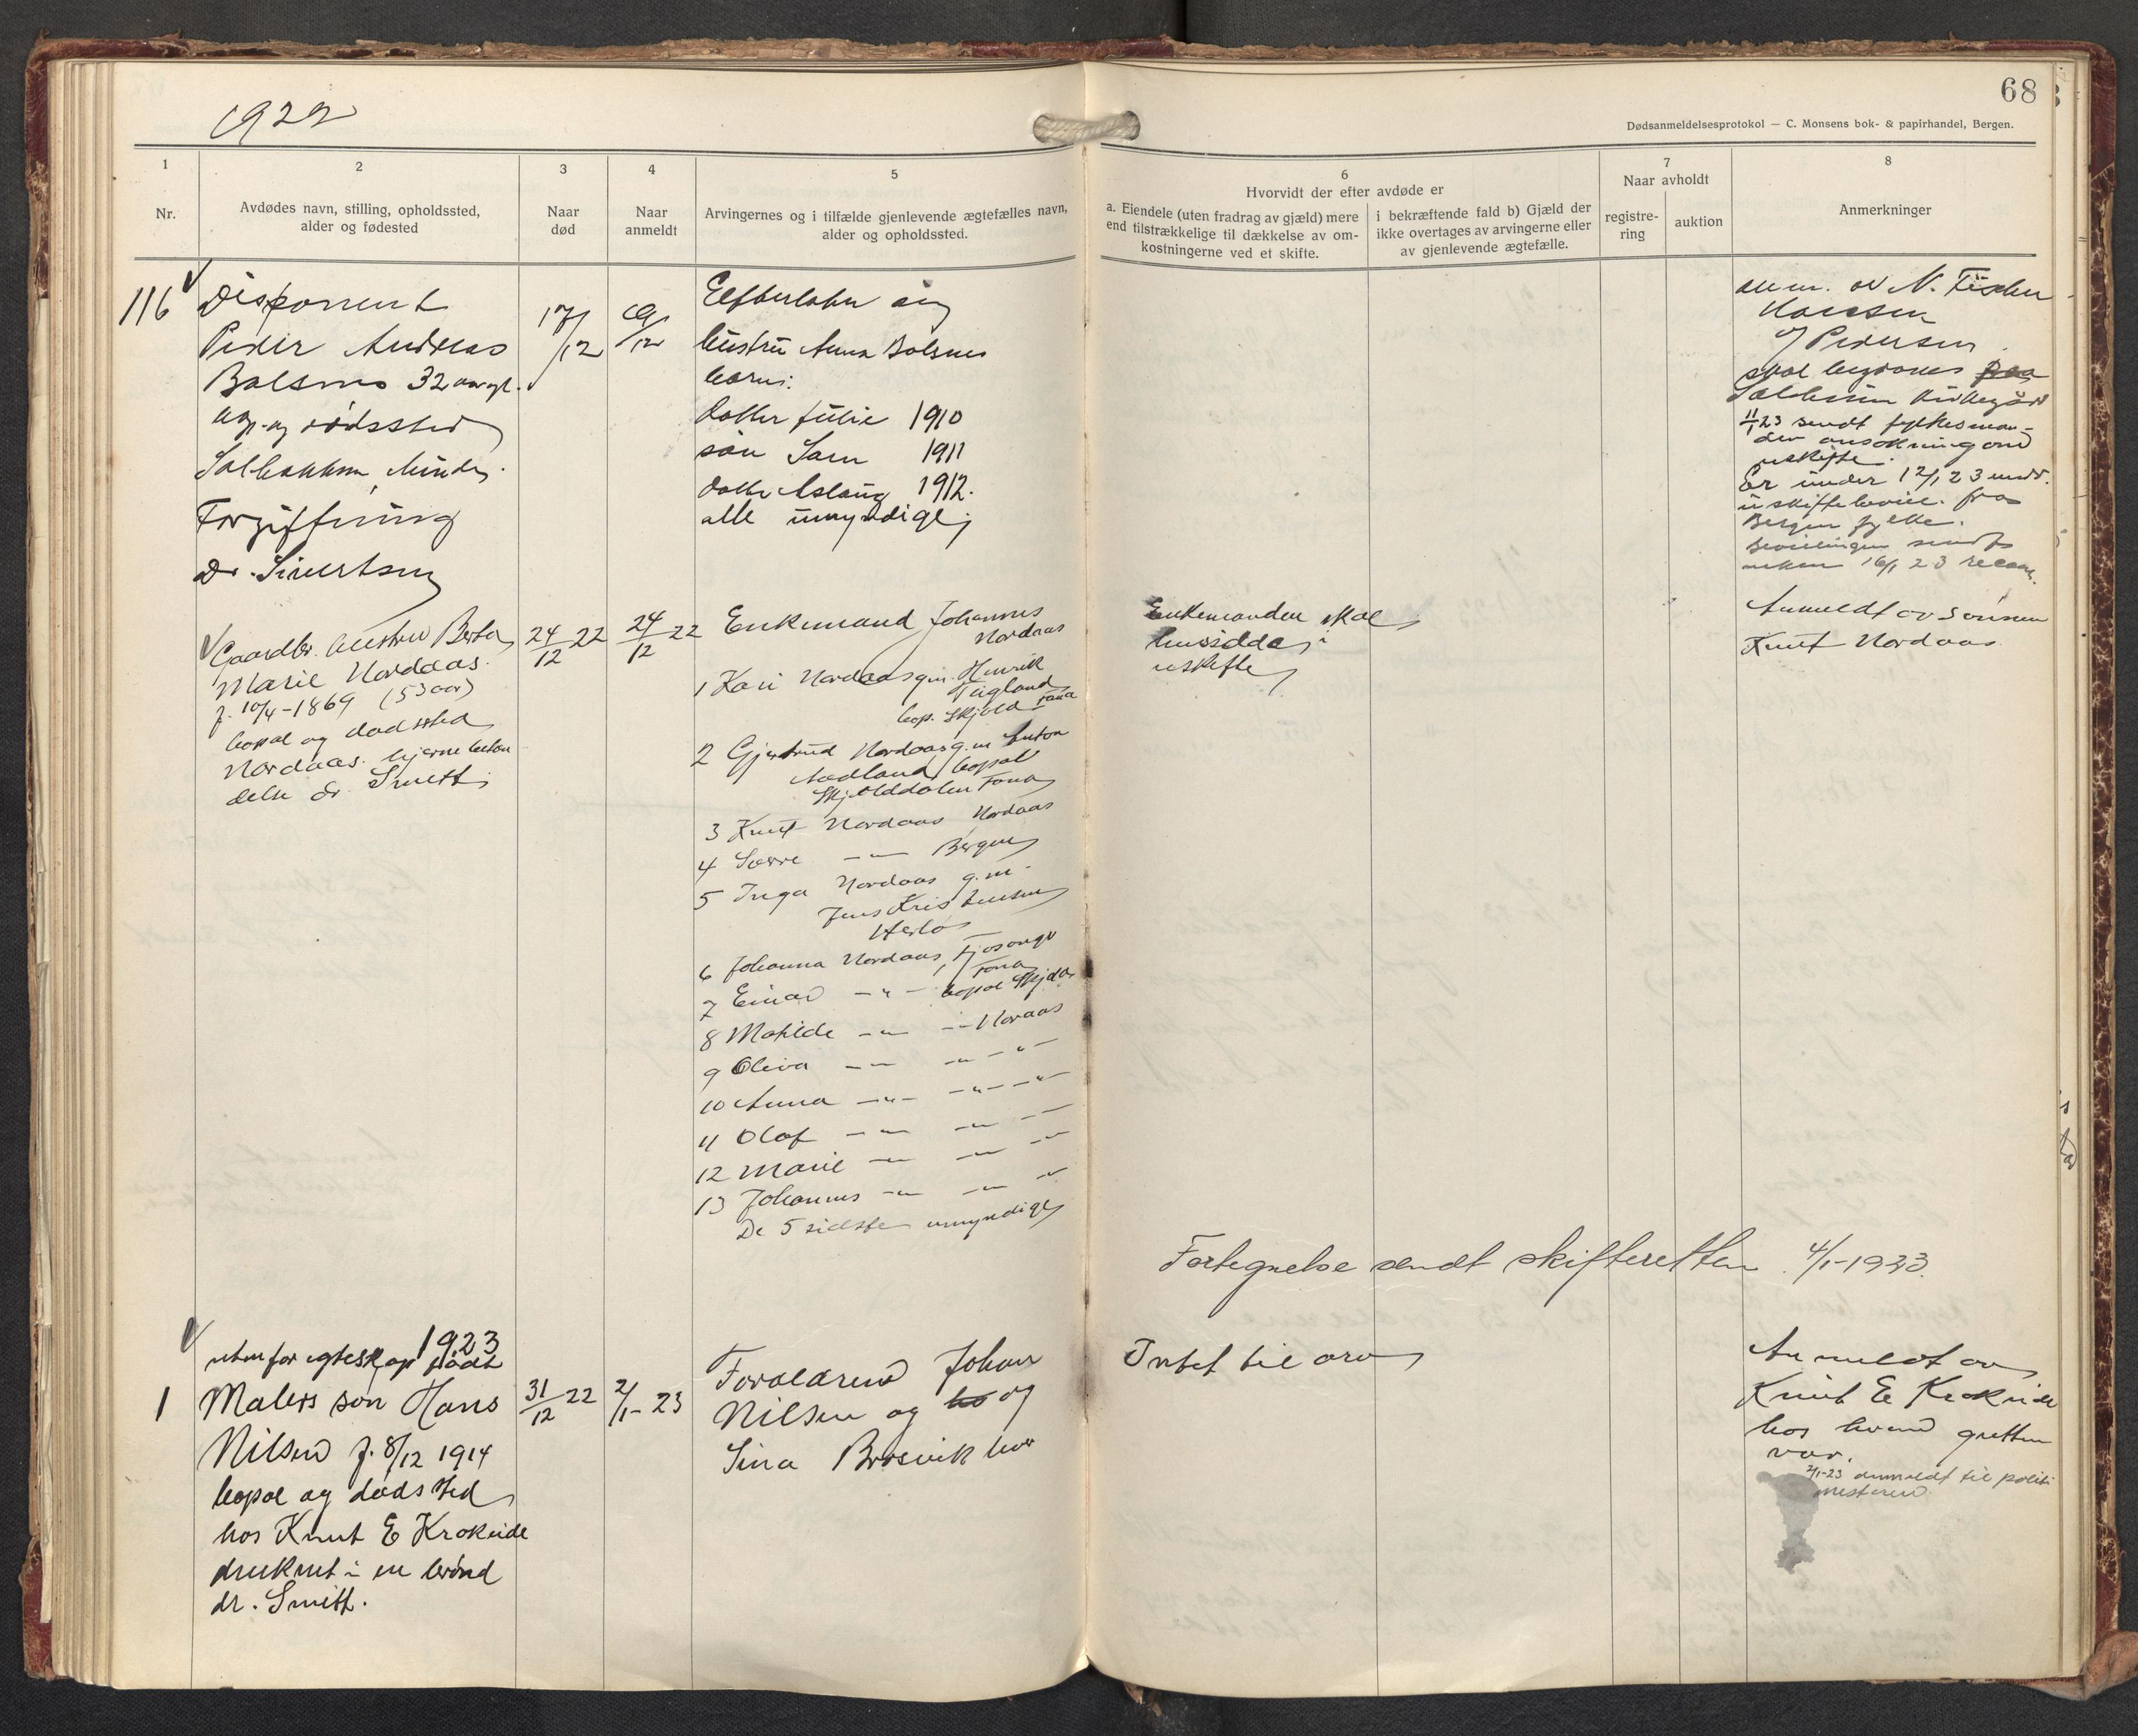 1922
68
Dødsanmeldelsesprotokol — C. Monsens bok- & papirhandel, Bergen.
1
2
3
4
5
6
7
8
Nr.
Avdødes navn, stilling, opholdssted,
alder og fødested
Naar
død
Naar
anmeldt
Arvingernes og i tilfælde gjenlevende ægtefælles navn,
alder og opholdssted.
Hvorvidt der efter avdøde er
a. Eiendele (uten fradrag av gjæld) mere
end tilstrækkelige til dækkelse av om-
kostningerne ved et skifte.
i bekræftende fald b) Gjæld der
ikke overtages av arvingerne eller
av gjenlevende ægtefælle.
Naar avholdt
registre-
ring
auktion
Anmerkninger
116
Disponent
Peder Andreas
Balsnes 32 aar gl.
og dødssted
Solbakken, Minde.
Forgiftning
Dr. Sivertsen
17/12
19/12
Efterlater sig
hustru Anna Balsnes
barn:
datter Julie 1910
søn Sam 1911
datter Aslaug 1912.
alle umyndige
anm. av N. Fischer
Hanssen
Pedersen
skal begraves paa
Solheim kirkegård
11/1 23 sendt fylkesman-
den ansøkning om
uskifte.
Er under 12/1 23 medd.
uskiftebevill. fra
Bergen fylke.
Bevillingen sendt
enken 16/1 23 recom.
Gaardbr. hustru Berta
Marie Nordaas.
f. 10/4-1869 (53 aar)
bopæl og dødssted
Nordaas. hjernebeten
delse dr. Smitt
24/12 22
24/12 22
Enkemand Johannes
Nordaas
1 Kari Nordaas gm. Henrik
Teigland
bop. Skjold Fana
2 Gjertrud Nordaas g.m Anton
Aadland, bopæl
Skjolddalen Fana
3 Knut Nordaas Nordaas
4 Sverre —"— Bergen
5 Inga Nordaas g.m.
Jens Kristensen
Herlø
6 Johanna Nordaas, Fjøsanger
Fana
7 Einar —"— bopæl Skjold
8 Matilde —"— —"— Nordaas
9 Oliva —"— —"—"—
10 Anna —"— —"—"—
11 Olaf —"— —"— —
12 Marie —"— —"— —"—
13 Johannes —"— —"— —"—
De 5 sidste umyndige
Enkemanden skal
hensidde i
uskifte
Anmeldt av sønnen
Knut Nordaas
Fortegnelse sendt skifteretten 4/1-1923.
1923
utenfor egteskap født
1
Malers søn Hans
Nilsen f. 8/12 1914
bopæl og dødssted
hos Knut E Krokeide
druknet i en brønd
dr. Smitt.
31/12 22
2/1-23
Forældrene Johan
Nilsen og ho og
Sina Brosvik
Intet til arv
Anmeldt av
Knut E Krokeide
hos hvem gutten
var.
2/1-23 anmeldt til politi
mesteren.